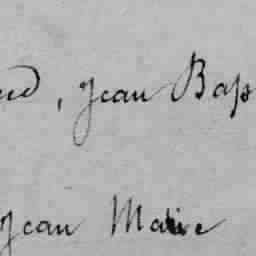 , Jean Bap
Jean Marie